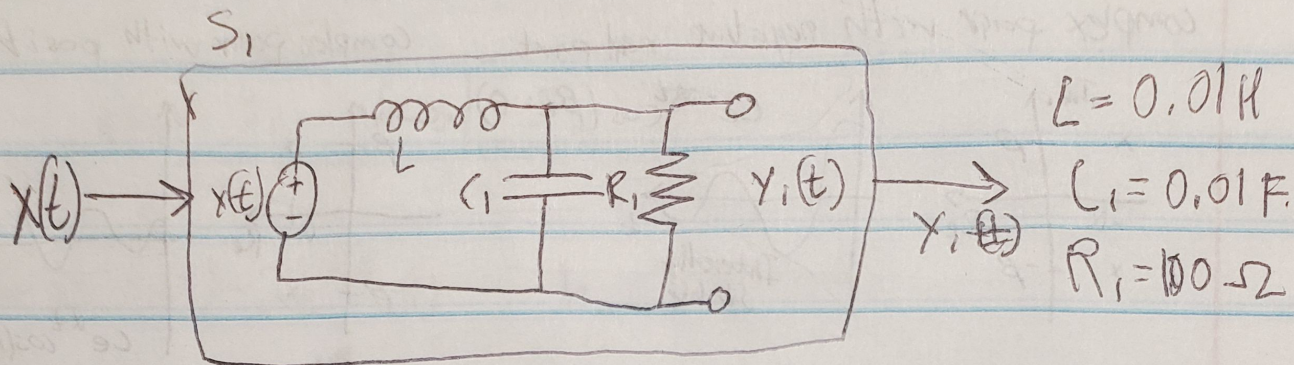 S₁
X(t)
x(t)
+
-
L
C₁
R₁
Y₁(t)
Y₁(t)
L = 0.01H
C₁ = 0.01F.
R₁ = 100 Ω